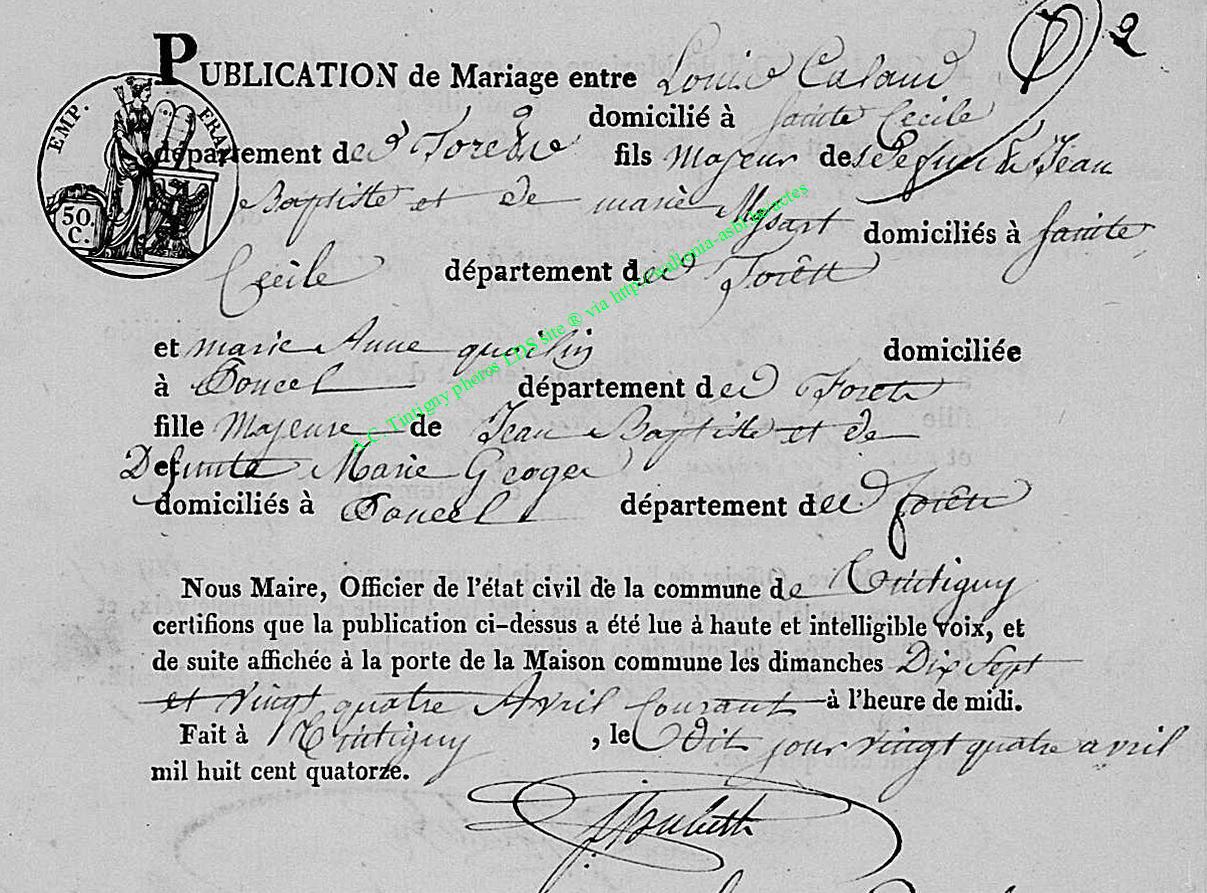 2
PUBLICATION de Mariage entre Louis Calaud
domicilié à Sainte Cecile
EMP. FRA
50 C.
département des Forets fils Majeur de defunt Jean
Baptiste et de marie Mysart domiciliés à Sainte
Cecile département des Forêts
et marie Anne domiciliée
à département des Forets
fille Majeure de Jean Baptiste et de
Defunte Marie Geoger
domiciliés à département des forêts
Nous Maire, Officier de l'état civil de la commune de Tintigny
certifions que la publication ci-dessus a été lue à haute et intelligible voix, et
de suite affichée à la porte de la Maison commune les dimanches Dix Sept
et vingt quatre Avril Courant à l'heure de midi.
Fait à Tintigny, le dit jour vingt quatre avril
mil huit cent quatorze.
A.C. Tintigny photos LDS site ® via